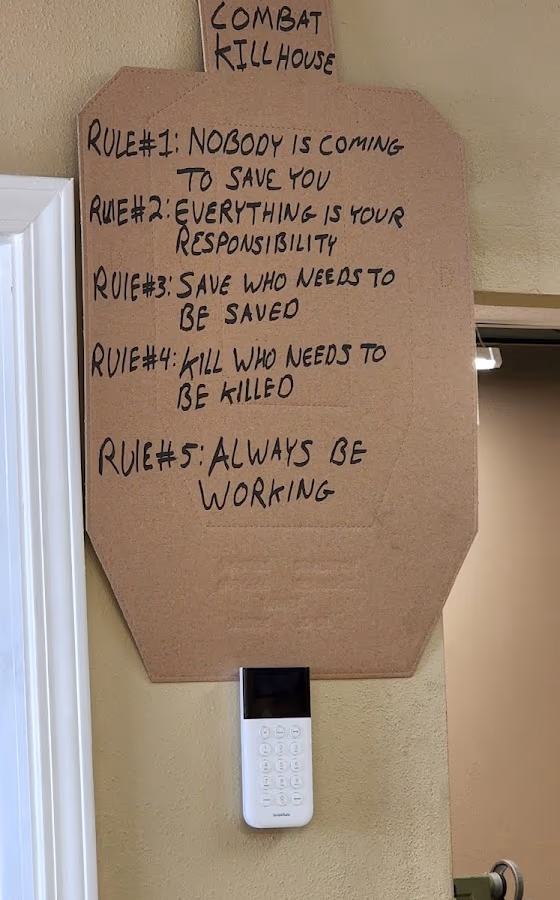 COMBAT
KILLHOUSE
RULE#1: NOBODY IS COMING
TO SAVE YOU
RULE#2: EVERYTHING IS YOUR
RESPONSIBILITY
RULE#3: SAVE WHO NEEDS TO
BE SAVED
RULE#4: KILL WHO NEEDS TO
BE KILLED
RULE#5: ALWAYS BE
WORKING
SimpliSafe